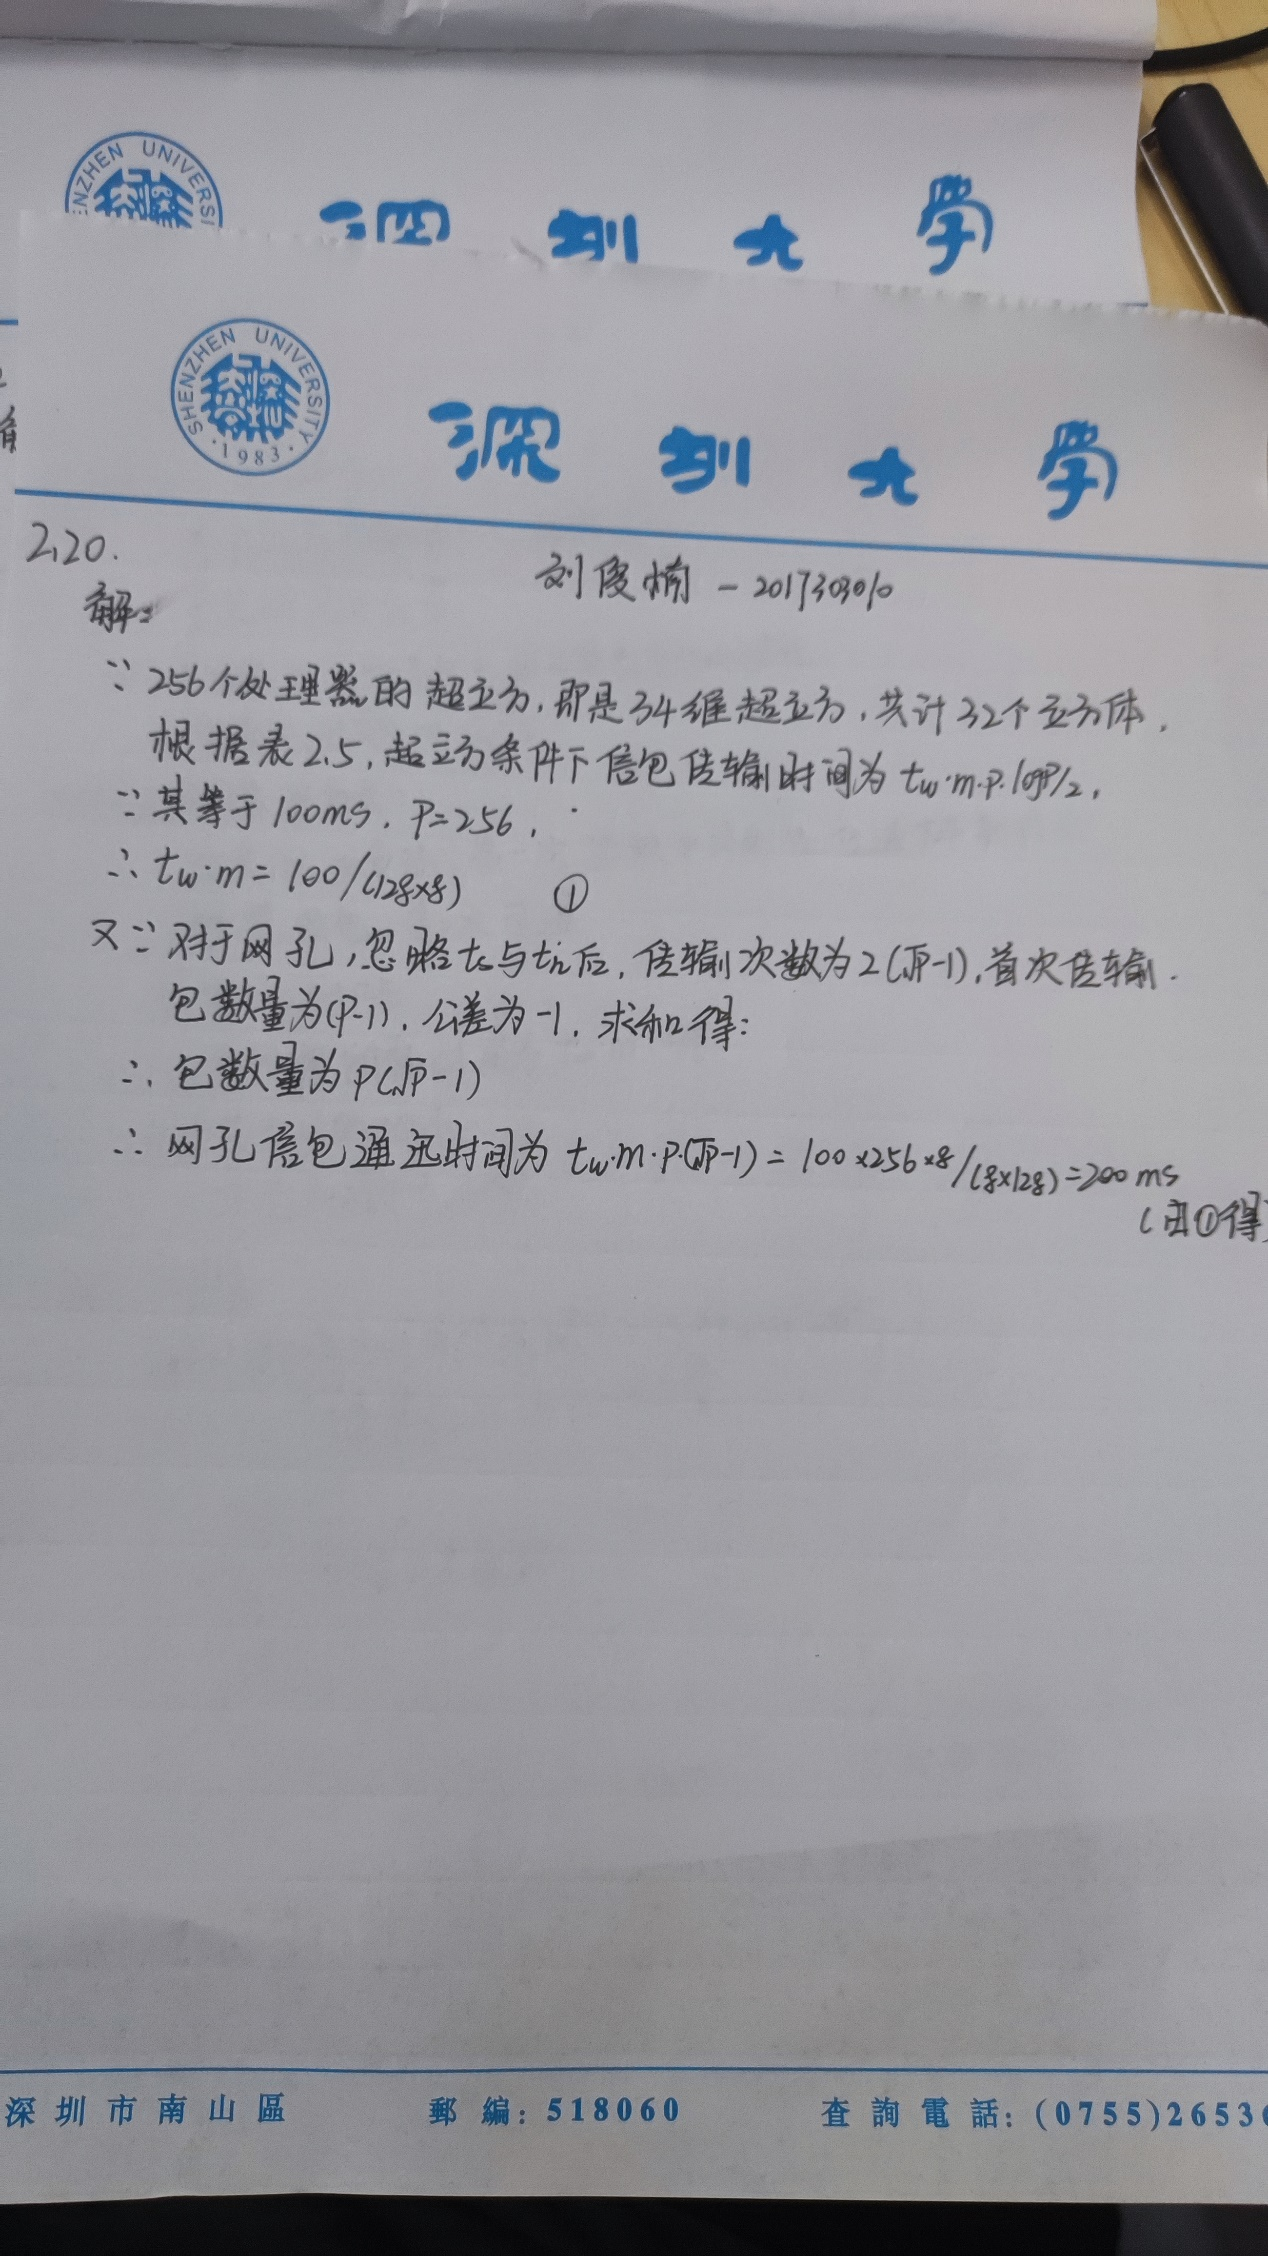 NZHEN UNIVERSI
深圳大学
SHENZHEN UNIVERSITY
·1983·
深圳大学
2.20.
刘俊楠-2017303010
解:
∵256个处理器的超立方,即是34维超立方,共计32个立方体.
根据表2.5,超立方条件下信包传输时间为tw·m·p·logP/2,
∵其等于100ms,P=256,
∴tw·m=100/(128×8) ①
又∵对于网孔,忽略ts与th后,传输次数为2(√P-1),首次传输
包数量为(P-1),公差为-1,求和得:
∴包数量为P(√P-1)
∴网孔信包通迅时间为tw·m·P·(√P-1)=100×256×8/(8×128)=200ms
(由①得)
深圳市南山區 郵編:518060 查詢電話:(0755)2653